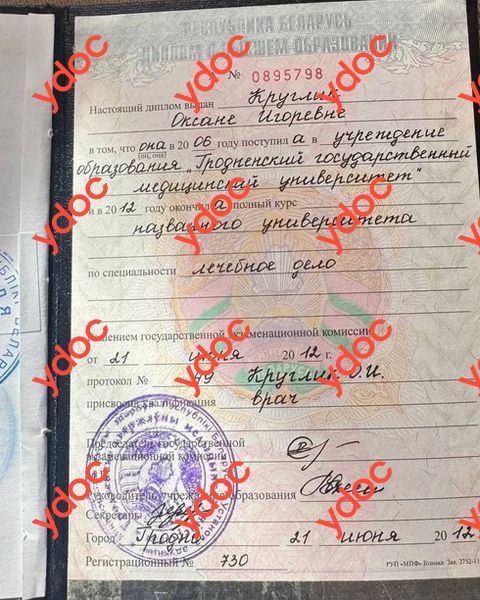 РЕСПУБЛИКА БЕЛАРУСЬ
ДИПЛОМ О ВЫСШЕМ ОБРАЗОВАНИИ
№ 0895798
Настоящий диплом выдан Круглик
Оксане Игоревне
в том, что она в 2006 году поступила в учреждение
(он, она)
образования „Гродненский государственный
медицинский университет"
и в 2012 году окончила полный курс
названного университета
по специальности лечебное дело
Решением государственной экзаменационной комиссии
от 21 июня 2012 г.
протокол № 49 Круглик О.И.
присвоена квалификация врач
Председатель государственной
экзаменационной комиссии
Руководитель учреждения образования
Секретарь
Город Гродно 21 июня 2012
Регистрационный № 730
РУП «МПФ» Гознака. Зак. 2752-11
ydoc ydoc ydoc
ydoc ydoc ydoc
ydoc ydoc ydoc
ydoc ydoc ydoc